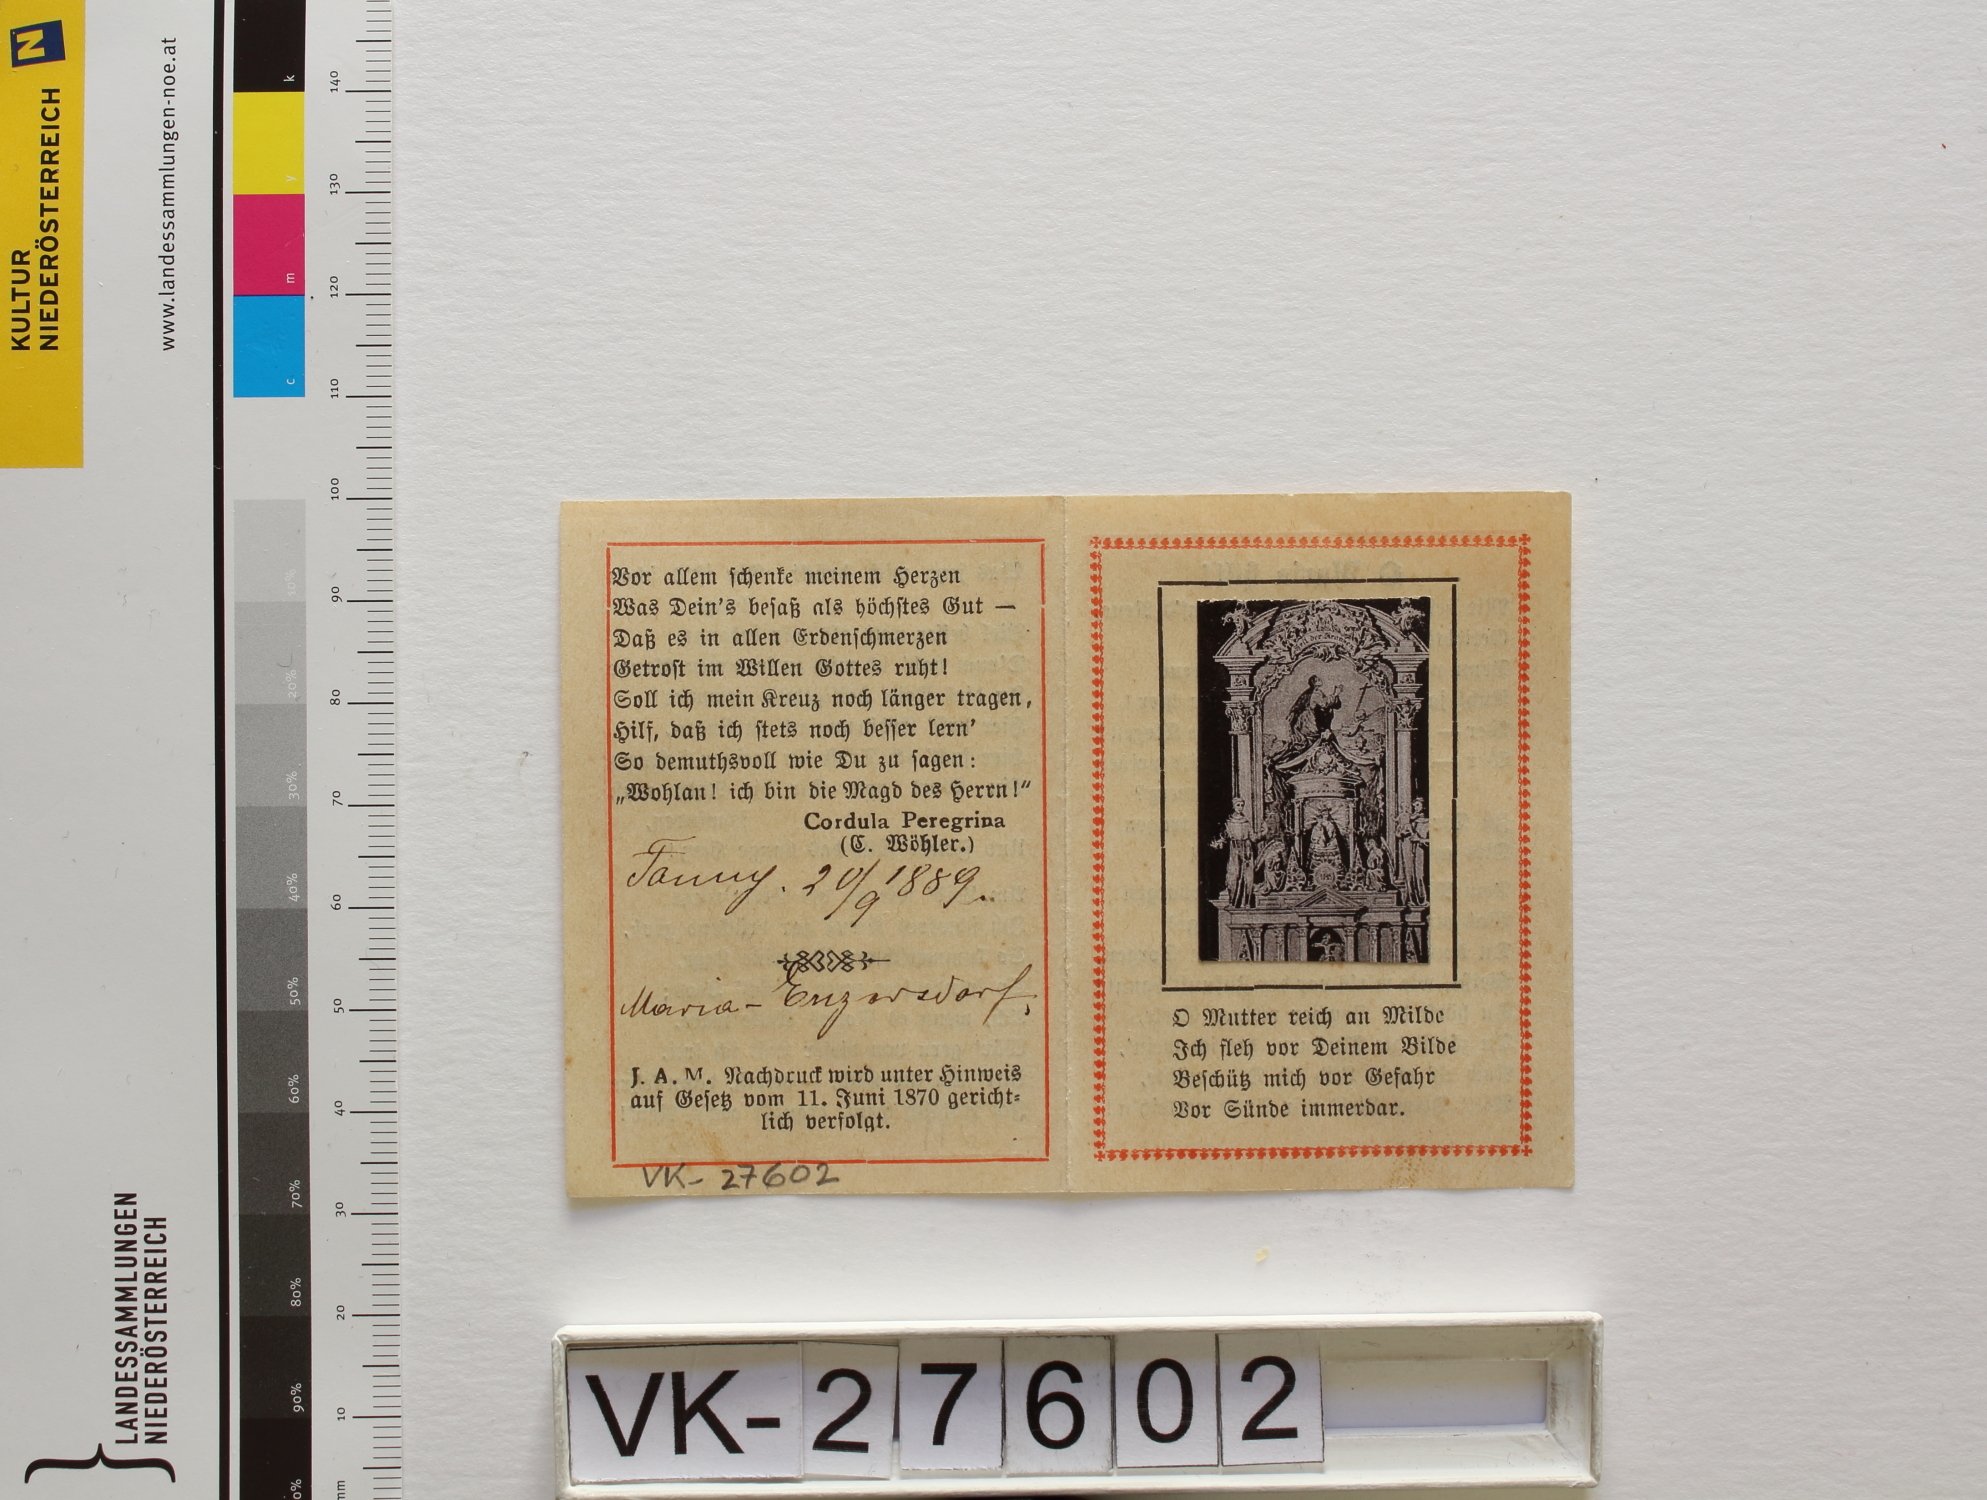 KULTUR
NIEDERÖSTERREICH
N
www.landessammlungen-noe.at
LANDESSAMMLUNGEN
NIEDERÖSTERREICH
k
v
m
c
10%
20%
30%
40%
50%
60%
70%
80%
90%
0%
140
130
120
110
100
90
80
70
60
50
40
30
20
10
mm
Vor allem schenke meinem Herzen
Was Dein's besaß als höchstes Gut —
Daß es in allen Erdenschmerzen
Getrost im Willen Gottes ruht!
Soll ich mein Kreuz noch länger tragen,
Hilf, daß ich stets noch besser lern'
So demuthsvoll wie Du zu sagen:
„Wohlan! ich bin die Magd des Herrn!“
Cordula Peregrina
(C. Wöhler.)
Fanny. 20/9 1889.
Maria-Enzersdorf,
J. A. M. Nachdruck wird unter Hinweis
auf Gesetz vom 11. Juni 1870 gericht=
lich verfolgt.
VK- 27602
O Mutter reich an Milde
Ich fleh vor Deinem Bilde
Beschütz mich vor Gefahr
Vor Sünde immerdar.
VK-27602